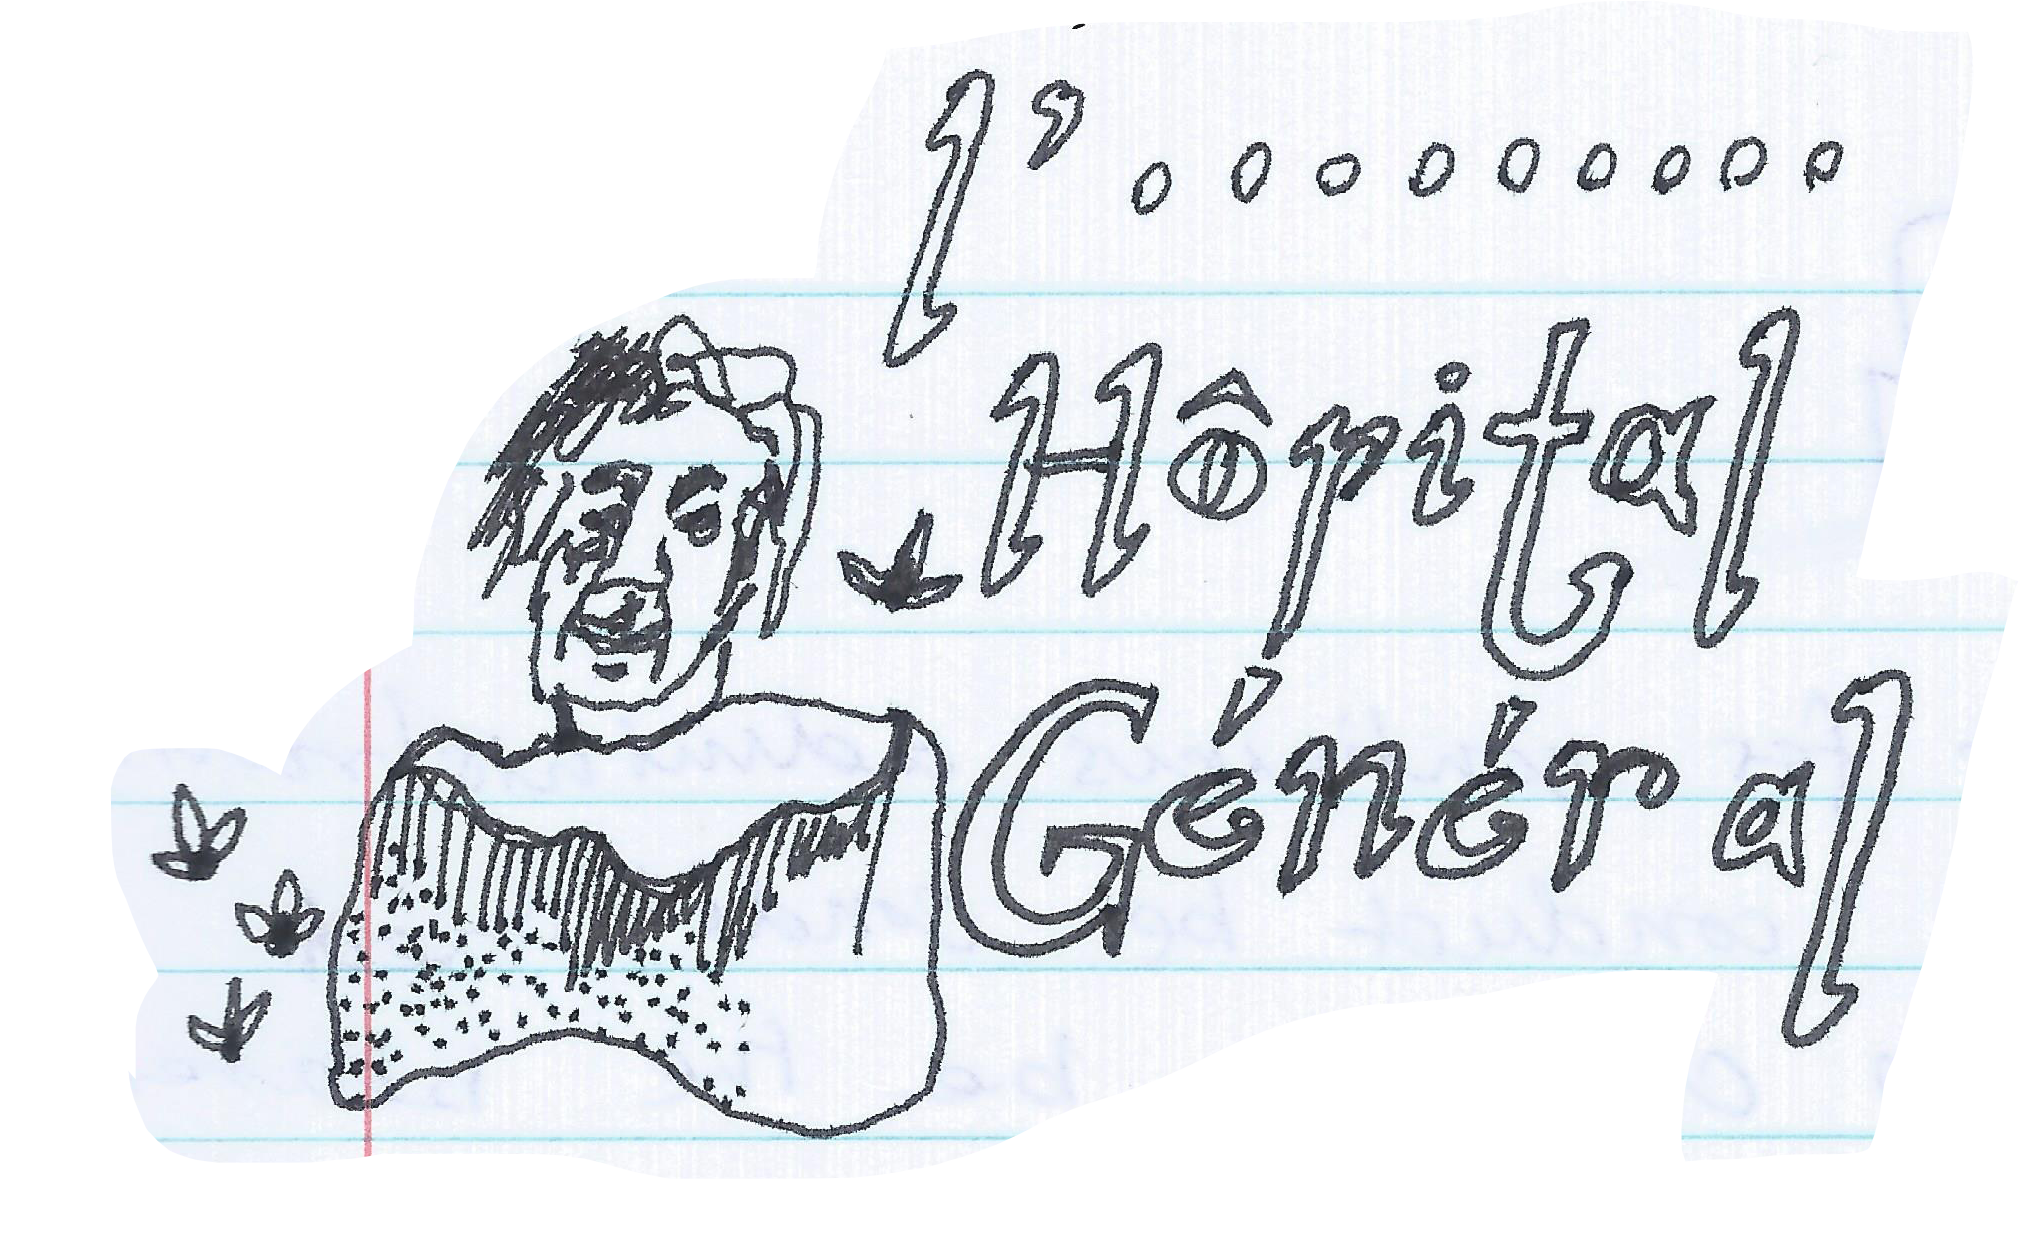 l'
Hôpital
Général